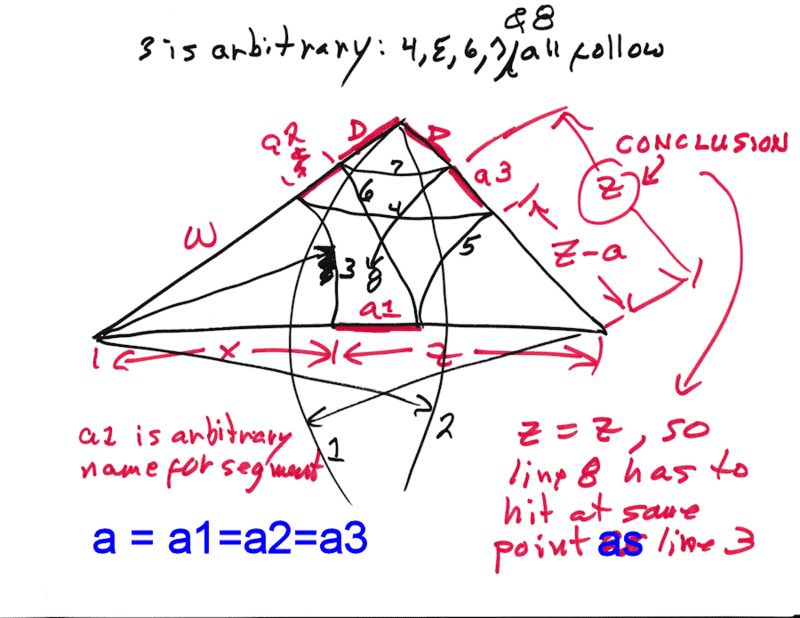 & 8
3 is arbitrary: 4, 5, 6, 7, all follow
D
D
a2
a3
CONCLUSION
Z
7
6
4
5
W
3
8
Z-a
a1
X
Z
1
2
a2 is arbitrary
name for segment
a = a1=a2=a3
Z = Z, so
line 8 has to
hit at same
point as line 3